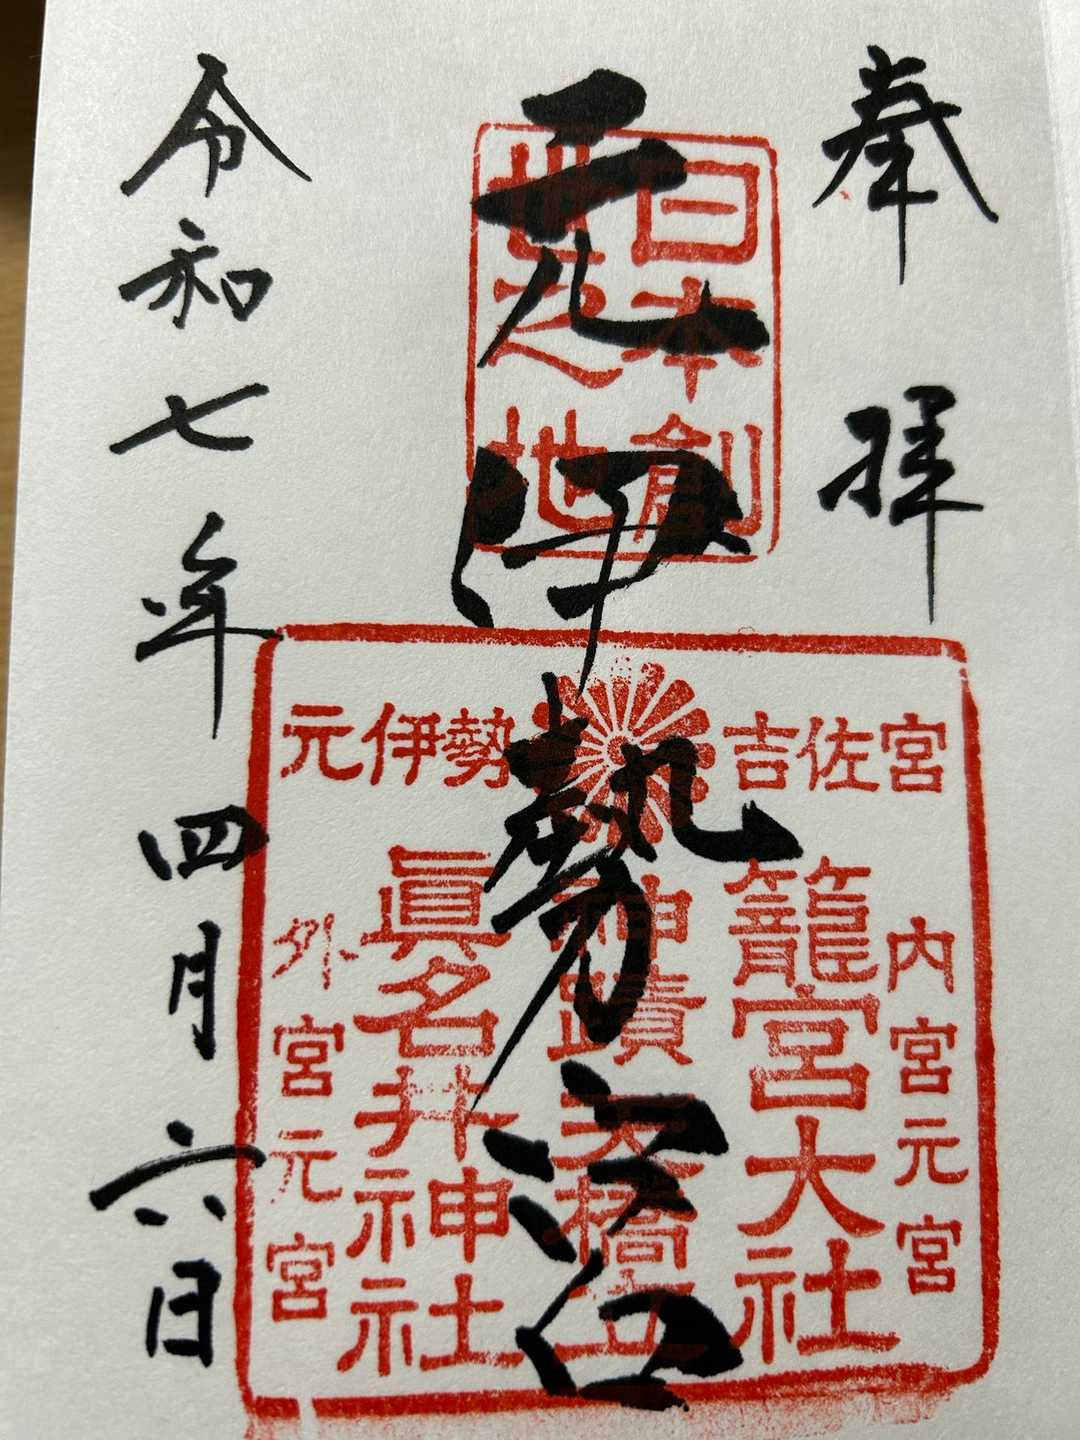 奉拝
日本創
世之地
元伊勢宮
吉佐宮
元伊勢
内宮元宮
籠宮大社
神蹟天橋立
眞名井神社
外宮元宮
令和七年四月六日